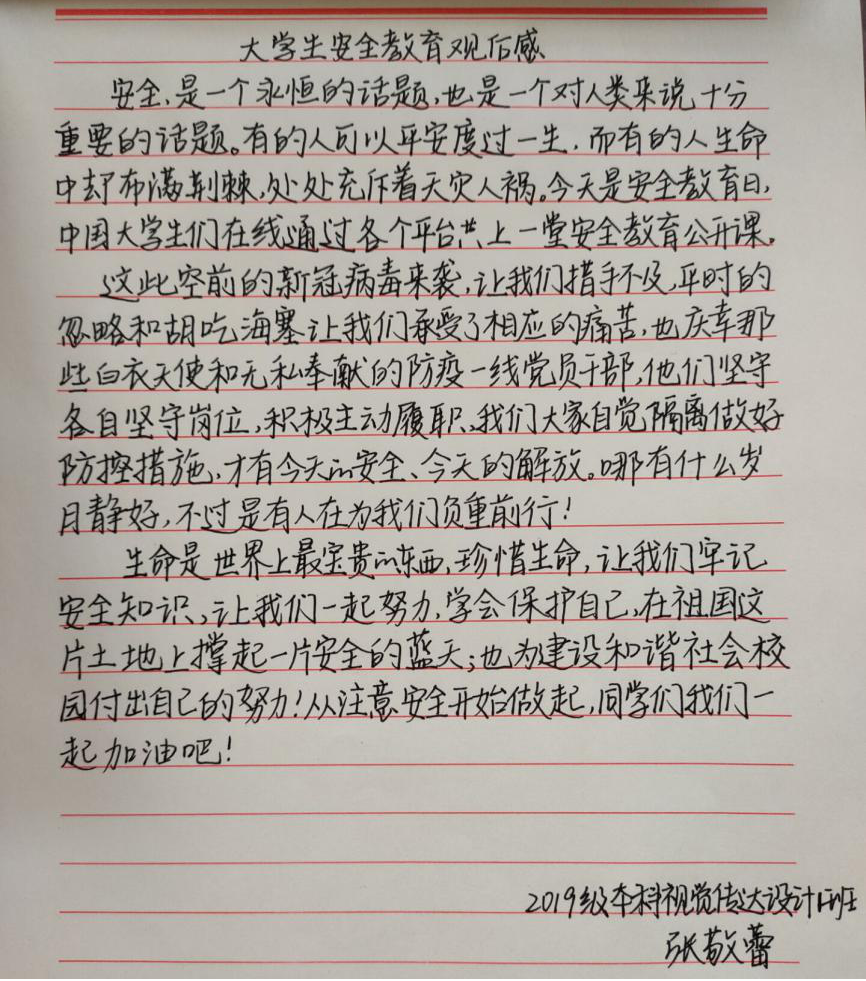 大学生安全教育观后感
安全,是一个永恒的话题,也是一个对人类来说十分
重要的话题。有的人可以平安度过一生,而有的人生命
中却布满荆棘,处处充斥着天灾人祸。今天是安全教育日,
中国大学生们在线通过各个平台共上一堂安全教育公开课。
这此空前的新冠病毒来袭,让我们措手不及,平时的
忽略和胡吃海塞让我们承受了相应的痛苦,也庆幸那
些白衣天使和无私奉献的防疫一线党员干部,他们坚守
各自坚守岗位,积极主动履职,我们大家自觉隔离做好
防控措施,才有今天的安全、今天的解放。哪有什么岁
月静好,不过是有人在为我们负重前行!
生命是世界上最宝贵的东西,珍惜生命,让我们牢记
安全知识,让我们一起努力,学会保护自己,在祖国这
片土地上撑起一片安全的蓝天;也为建设和谐社会校
园付出自己的努力!从注意安全开始做起,同学们我们一
起加油吧!
2019级本科视觉传达设计1班
张敬蕾